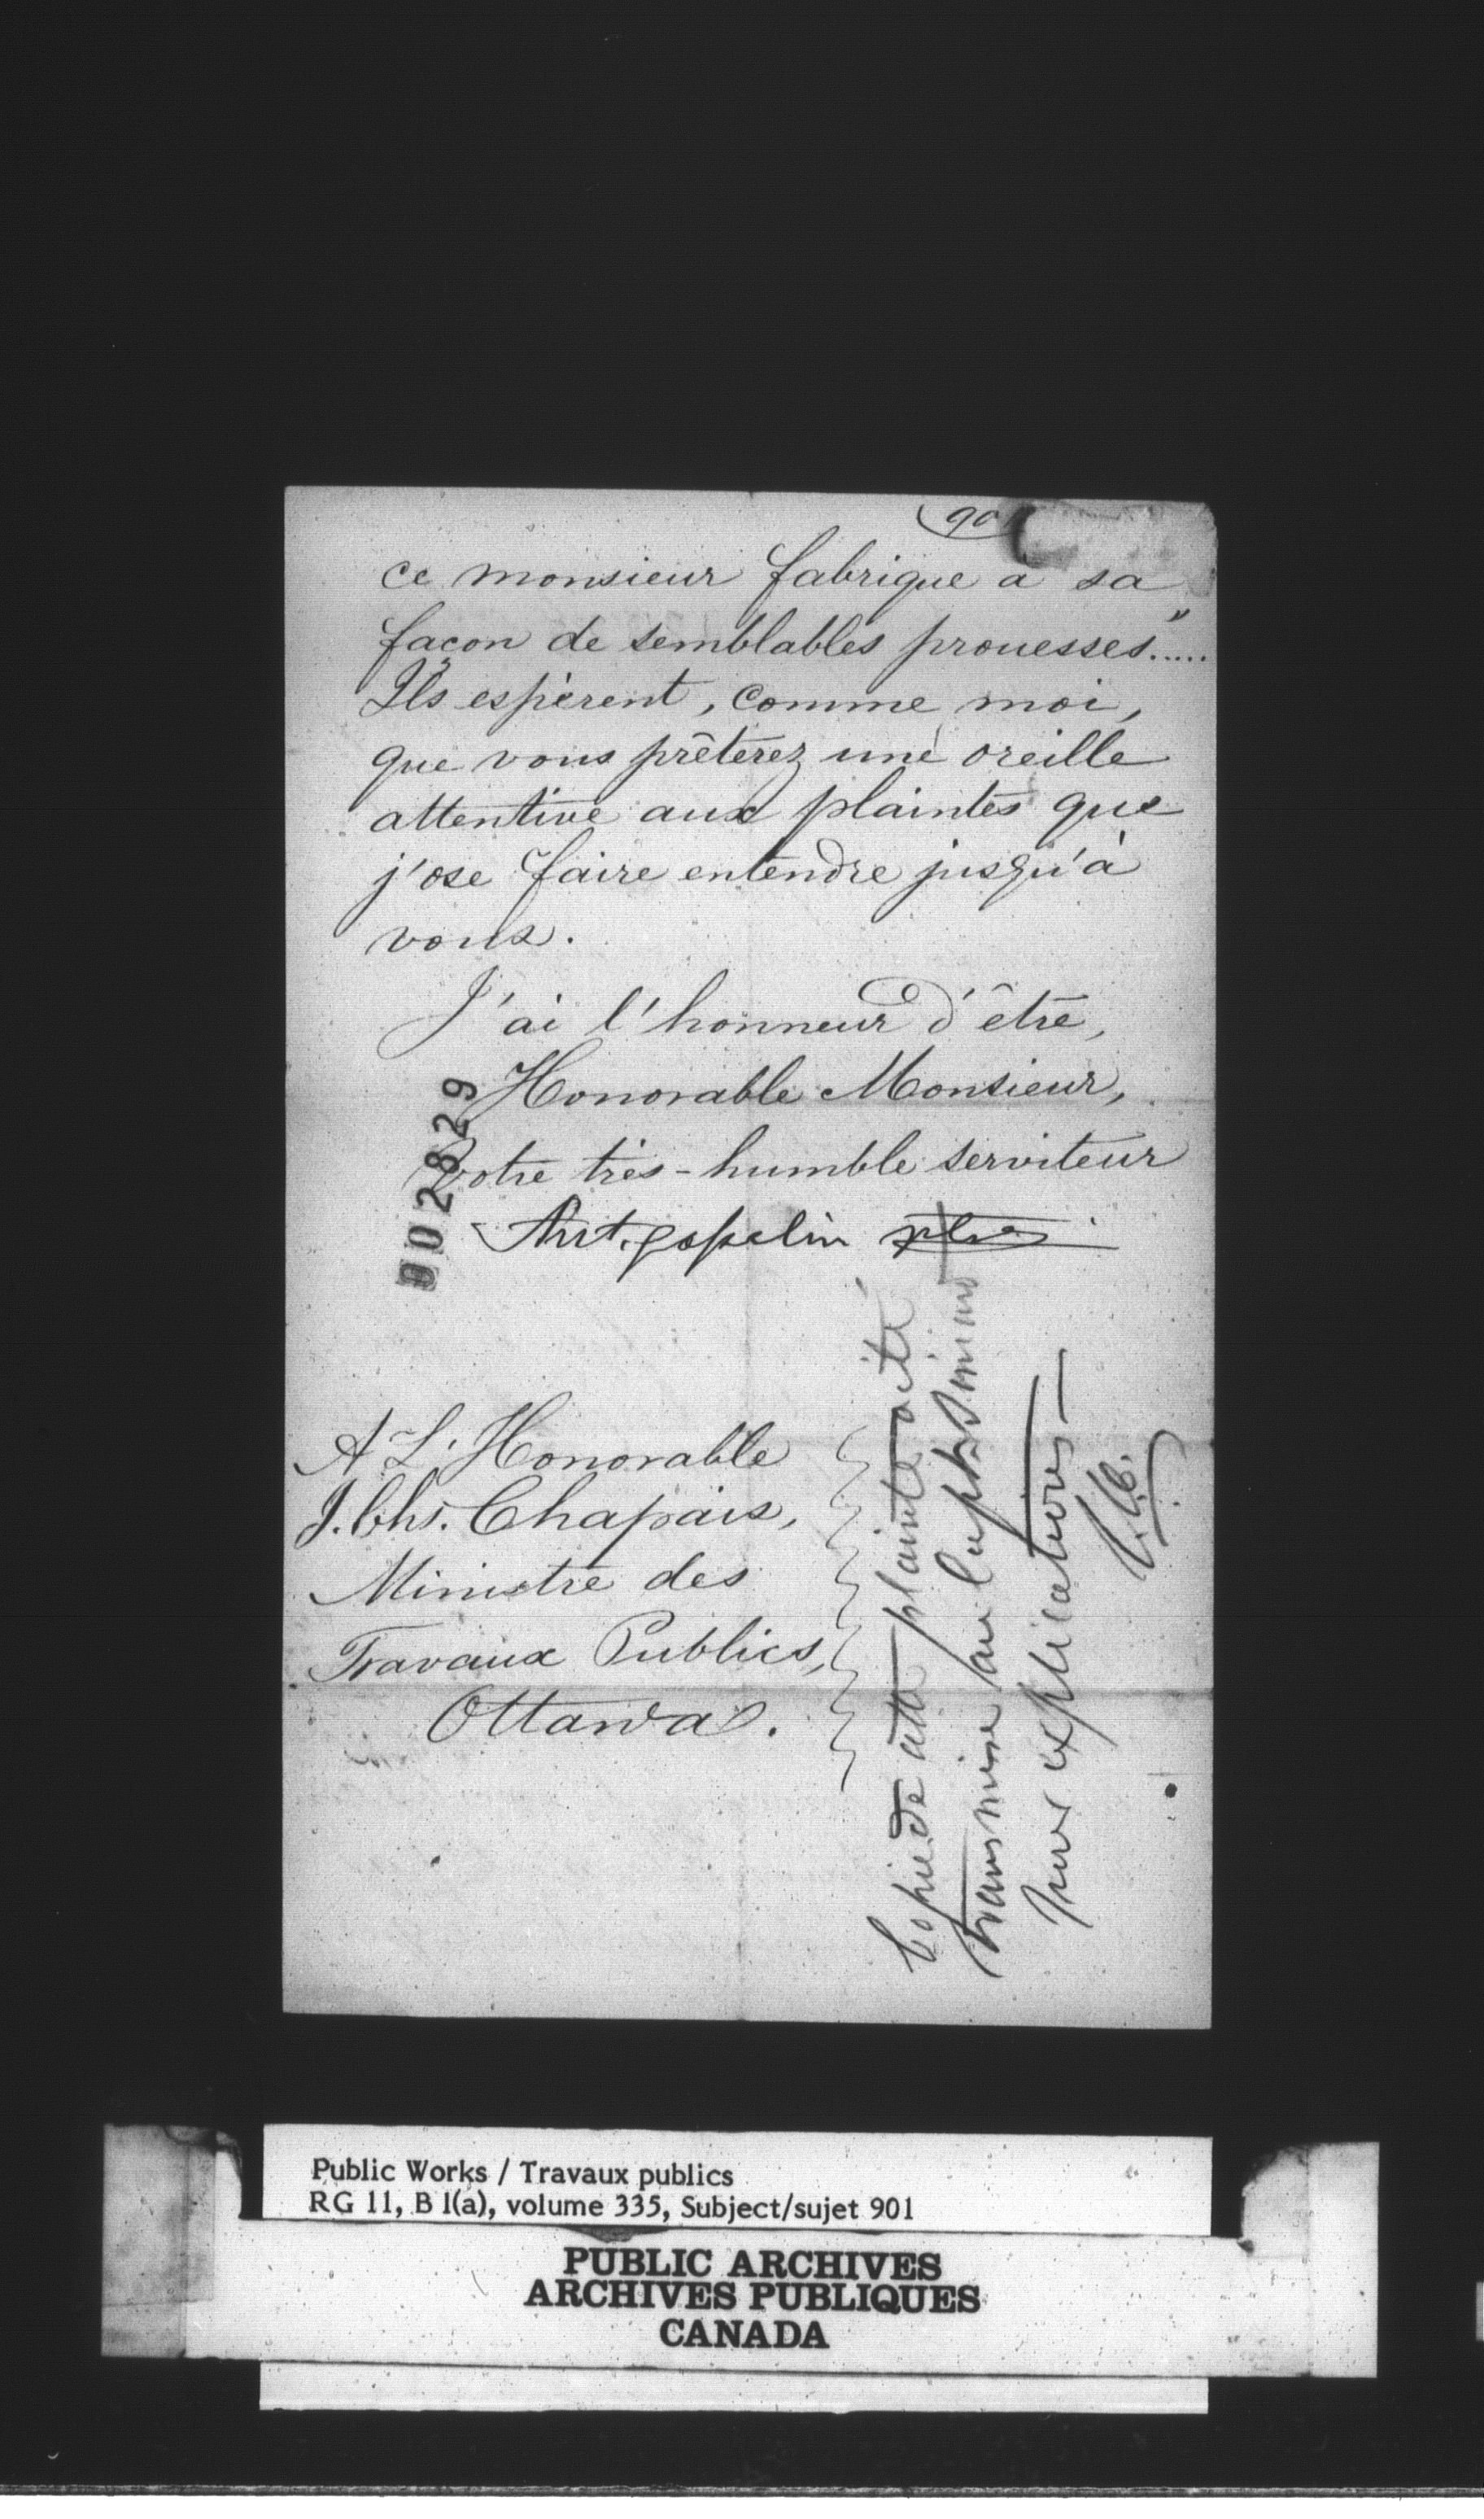 901
ce monsieur fabrique à sa
façon de semblables prouesses".....
Ils espèrent, comme moi,
que vous prêterez une oreille
attentive aux plaintes que
j'ose faire entendre jusqu'à
vous.
J'ai l'honneur d'être,
Honorable Monsieur,
Votre très-humble serviteur
Ant. gospelin ptre
002829
A L'Honorable
J. Chs. Chapais,
Ministre des
Travaux Publics,
Ottawa.
Copie de cette plainte a été
transmise au Capt
pour explications—
Public Works / Travaux publics
RG 11, B 1(a), volume 335, Subject/sujet 901
PUBLIC ARCHIVES
ARCHIVES PUBLIQUES
CANADA